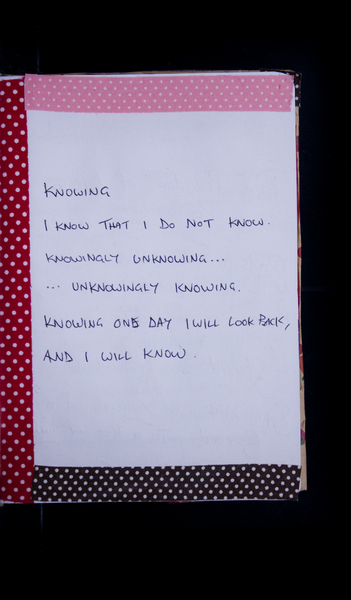 KNOWING
I KNOW THAT I DO NOT KNOW.
KNOWINGLY UNKNOWING...
... UNKNOWINGLY KNOWING.
KNOWING ONE DAY I WILL LOOK BACK,
AND I WILL KNOW.